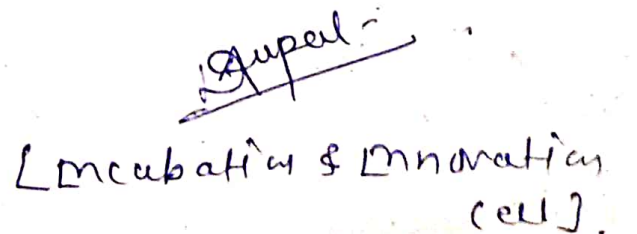 Rupal
[Incubation & Innovation
Cell].